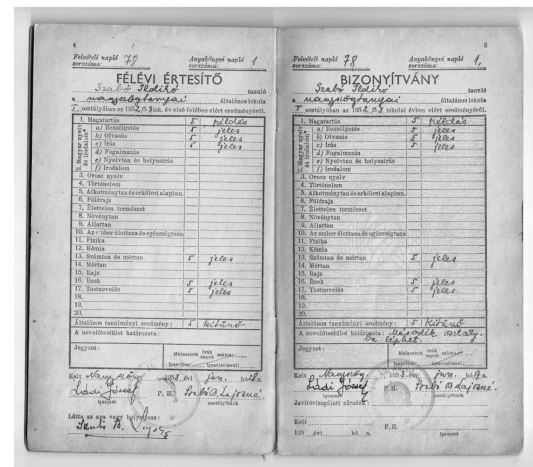 4
Felvételi napló sorszáma: 78
Anyakönyvi napló sorszáma: 1
FÉLÉVI ÉRTESÍTŐ
Szabó Ildikó tanuló
a nagyszögtanyai általános iskola
I. osztályában az 1952/53 isk. év első felében elért eredményéről.
1. Magatartás 5 példás
2. Magyar nyelv és irodalom
a) Beszélgetés 5 jeles
b) Olvasás 5 jeles
c) Írás 5 jeles
d) Fogalmazás
e) Nyelvtan és helyesírás
f) Irodalom
3. Orosz nyelv
4. Történelem
5. Alkotmánytan és erkölcsi alapism.
6. Földrajz
7. Élettelen természet
8. Növénytan
9. Állattan
10. Az ember élettana és egészségtana
11. Fizika
12. Kémia
13. Számtan és mértan 5 jeles
14. Mértan
15. Rajz
16. Ének 5 jeles
17. Testnevelés 5 jeles
18.
19.
20.
Általános tanulmányi eredmény: 5 kitűnő
A nevelőtestület határozata:
Jegyzet:
Mulasztott órák napok száma:
igazolva: igazolatlanul:
Kelt Nagyszög, 1953. évi jan. hó
Ládi József P. H. Szabó B. Lajosné
igazgató osztályfőnök
Látta az apa vagy helyettese:
5
Felvételi napló sorszáma: 78
Anyakönyvi napló sorszáma: 1,
BIZONYÍTVÁNY
Szabó Ildikó tanuló
a nagyszögtanyai általános iskola
I. osztályában az 1952/53 iskolai évben elért eredményéről.
1. Magatartás 5 példás
2. Magyar nyelv és irodalom
a) Beszélgetés 5 jeles
b) Olvasás 5 jeles
c) Írás 5 jeles
d) Fogalmazás
e) Nyelvtan és helyesírás
f) Irodalom
3. Orosz nyelv
4. Történelem
5. Alkotmánytan és erkölcsi alapism.
6. Földrajz
7. Élettelen természet
8. Növénytan
9. Állattan
10. Az ember élettana és egészségtana
11. Fizika
12. Kémia
13. Számtan és mértan 5 jeles
14. Mértan
15. Rajz
16. Ének 5 jeles
17. Testnevelés 5 jeles
18.
19.
20.
Általános tanulmányi eredmény: 5 kitűnő
A nevelőtestület határozata: Második osztályba léphet.
Jegyzet:
Mulasztott órák napok száma:
igazolva: igazolatlanul:
Kelt Nagyszög, 1953 évi jun. hó
Ládi József P. H. Szabó B. Lajosné
igazgató osztályfőnök
Javítóvizsgálati záradék:
Kelt
195 évi hó n. P. H. igazgató